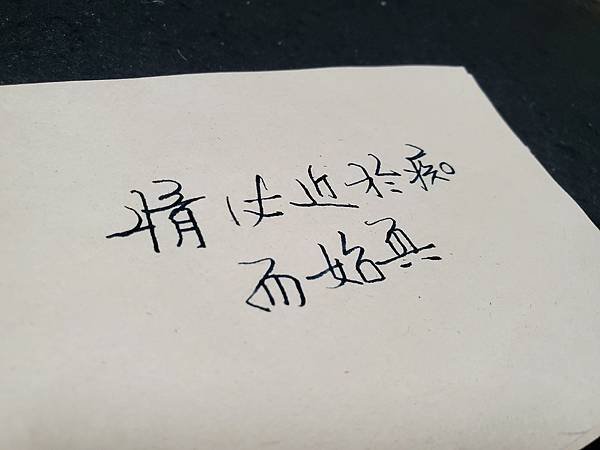 情必近於痴
而始真